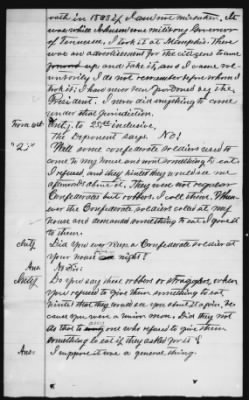 oath in 1863 if I am not mistaken. It
was while Johnson was military Governor
of Tennessee, I took it at Memphis. There
was an advertisement for the citizens
up and take it, and I came vo-
luntarily I do not remember before whom I
took it; I have never been pardoned by the
President. I never did anything to come
under that jurisdiction.
From 4st. Intg. to 25th inclusive,
The deponent says No!
"2)" Well some confederate soldiers used to
come to my house and want something to eat;
I refused, and they said they would see me
afterwards about it. They were not regular
Confederates but robbers I call them. When-
ever the Confederate soldiers called at my
house and demanded something to eat I gave it
to them.
Intg. Did you ever harm a Confederate soldier at
your house at night?
Ans. No Sir.
Intg. Do you say these robbers or stragglers when
you refused to give them something to eat
hinted that they would see you about it again, be-
cause you were a union man. Did they not
do that to any one who refused to give them
something to eat if they asked for it?
Ans: I suppose it was a general thing.